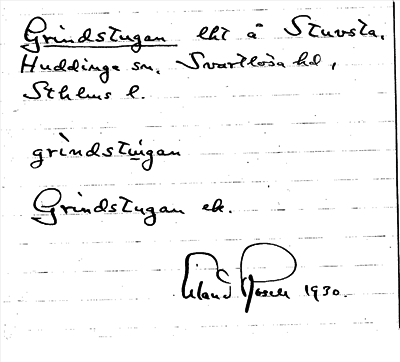 Grindstugan lht å Stuvsta,
Huddinge sn. Svartlösa hd,
Sthlms l.
grindstugan
Grindstugan ek.
1930.